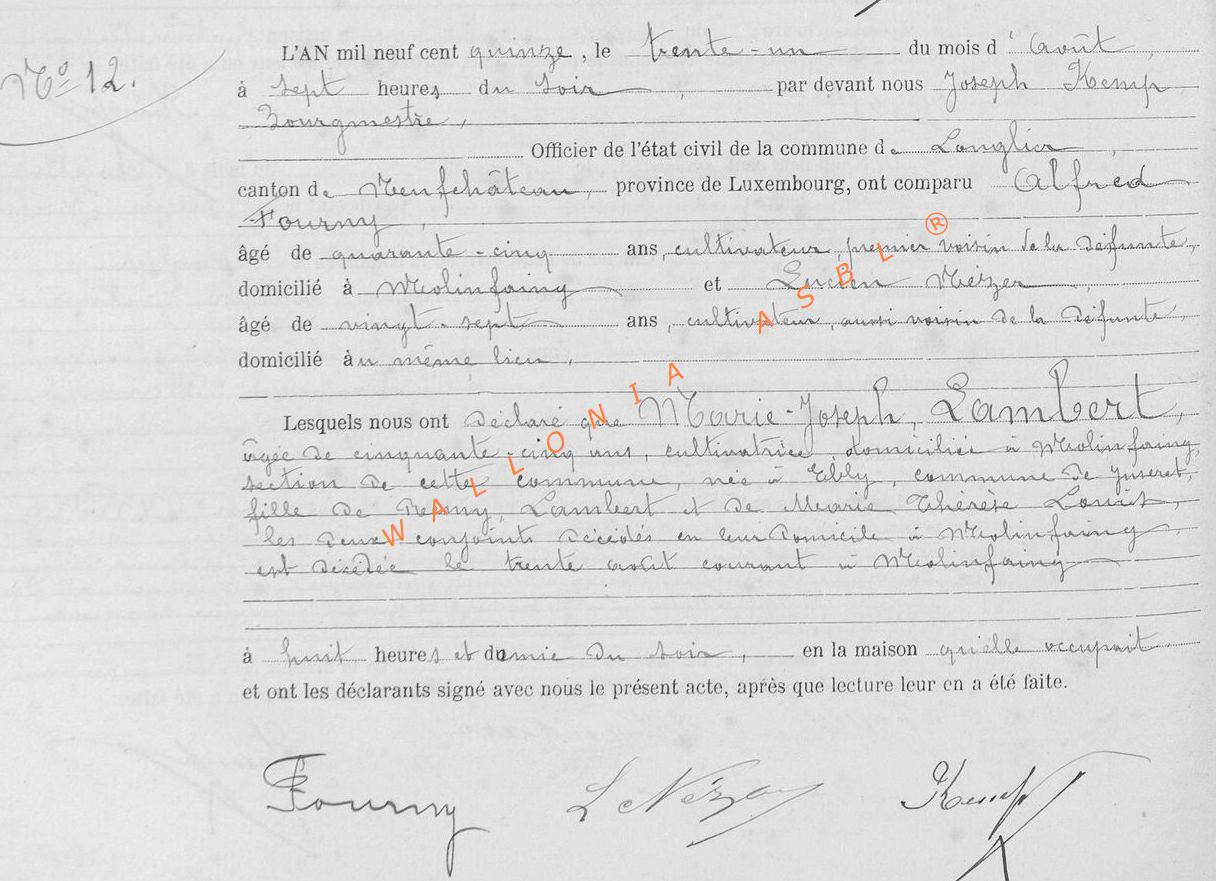 N° 12.
L'AN mil neuf cent quinze, le trente-un du mois d'août,
à sept heures du soir, par devant nous Joseph Kemp,
Bourgmestre,
Officier de l'état civil de la commune de Longlier,
canton de Neufchâteau, province de Luxembourg, ont comparu Alfred
Fourny,
âgé de quarante-cinq ans, cultivateur, premier voisin de la défunte,
domicilié à Molinfaing et Lucien Nézer,
âgé de vingt-sept ans, cultivateur, aussi voisin de la défunte,
domicilié au même lieu,
Lesquels nous ont déclaré que Marie-Joseph, Lambert,
âgée de cinquante-cinq ans, cultivatrice, domiciliée à Molinfaing,
section de cette commune, née à Ebly, commune de Juseret,
fille de Remy, Lambert et de Marie Thérèse
les deux conjoints décédés en leur domicile à Molinfaing,
est décédée le trente août courant à Molinfaing
à huit heures et demie du soir, en la maison qu'elle occupait
et ont les déclarants signé avec nous le présent acte, après que lecture leur en a été faite.
Fourny L Nézer Kemp
WALLONIA ASBL ®